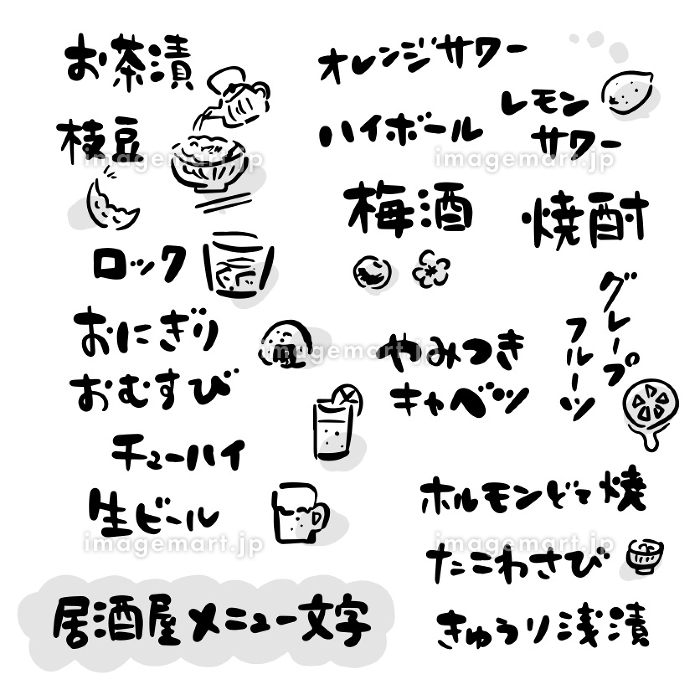 お茶漬
枝豆
ロック
おにぎり
おむすび
チューハイ
生ビール
オレンジサワー
ハイボール
レモン
サワー
梅酒
焼酎
グレープ
フルーツ
やみつき
キャベツ
ホルモンどて焼
たこわさび
きゅうり浅漬
居酒屋メニュー文字
imagemart.jp
imagemart.jp
imagemart.jp
imagemart.jp
imagemart.jp